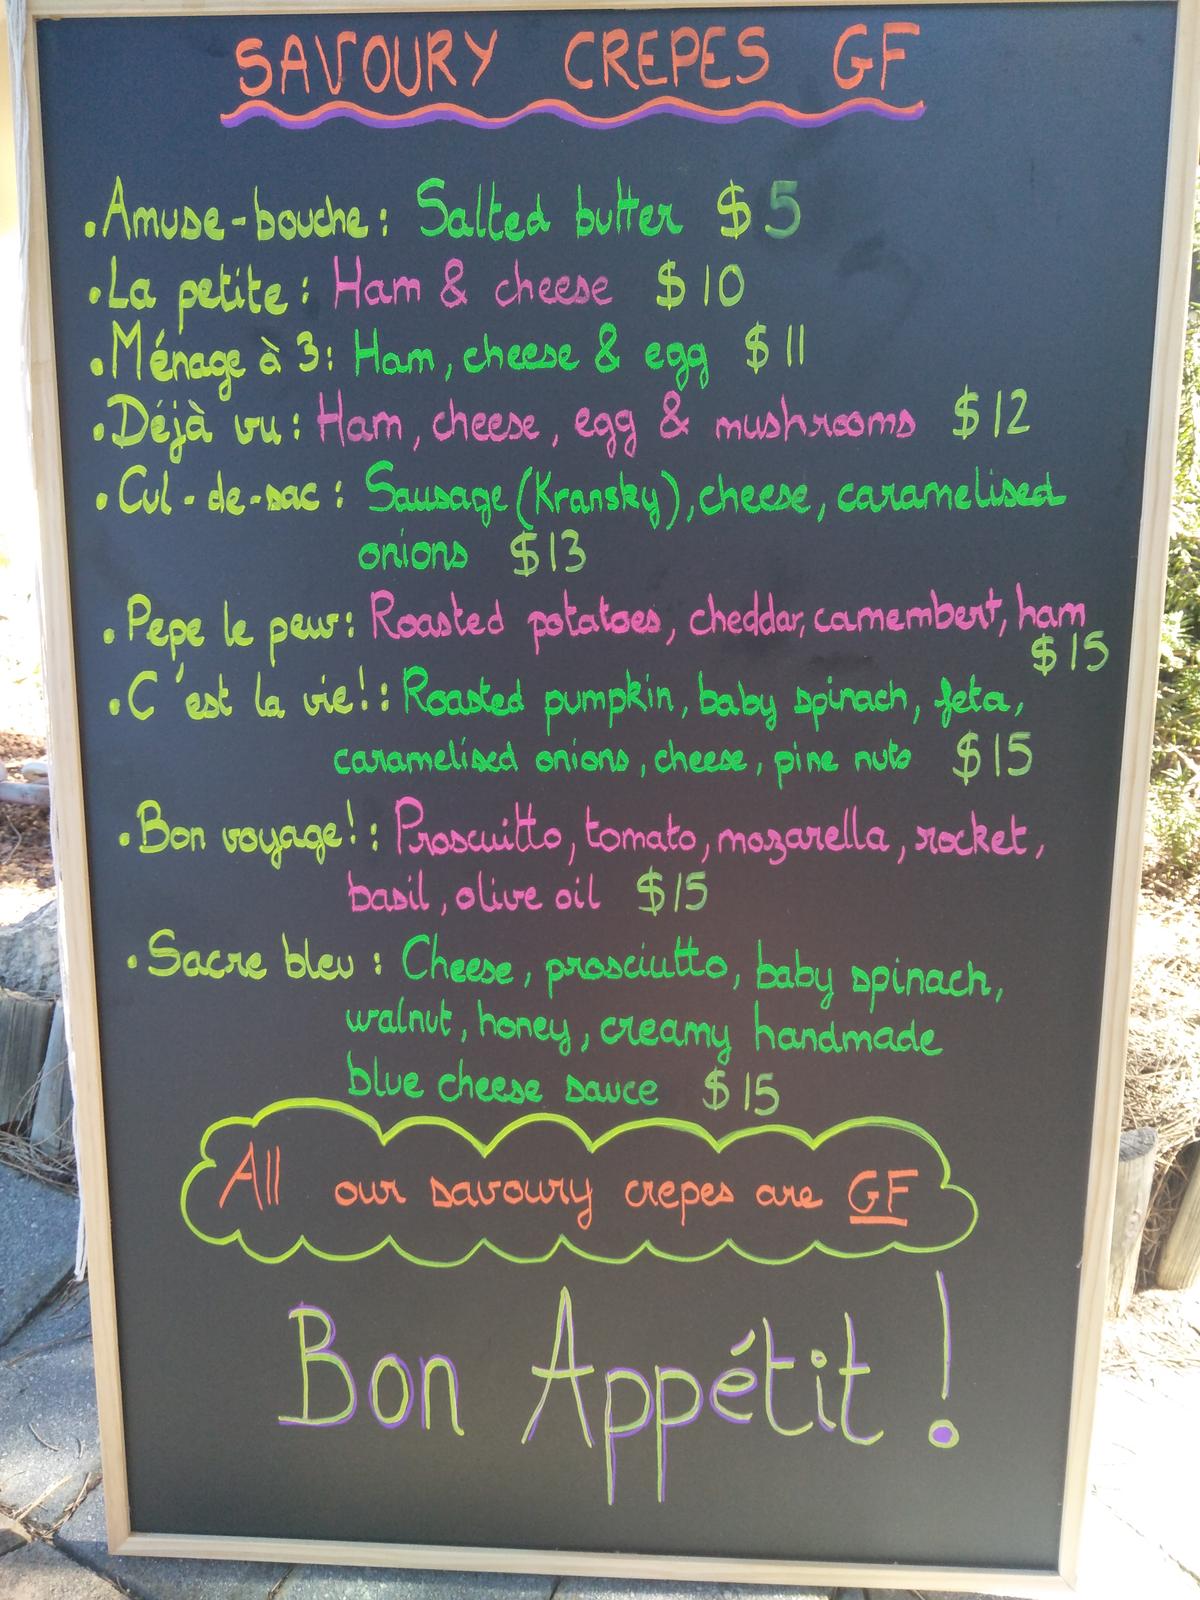 SAVOURY CREPES GF
• Amuse-bouche: Salted butter $5
• La petite: Ham & cheese $10
• Ménage à 3: Ham, cheese & egg $11
• Déjà vu: Ham, cheese, egg & mushrooms $12
• Cul-de-sac: Sausage (Kransky), cheese, caramelised
onions $13
• Pepe le pew: Roasted potatoes, cheddar, camembert, ham
$15
• C'est la vie!: Roasted pumpkin, baby spinach, feta,
caramelised onions, cheese, pine nuts $15
• Bon voyage!: Proscuitto, tomato, mozarella, rocket,
basil, olive oil $15
• Sacre bleu: Cheese, prosciutto, baby spinach,
walnut, honey, creamy handmade
blue cheese sauce $15
All our savoury crepes are GF
Bon Appétit!